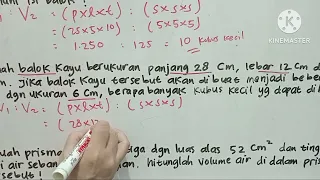 V₂ = (p x l x t) : (s x s x s)
= (25 x 5 x 10) : (5 x 5 x 5)
= 1.250 : 125 = 10 kubus kecil
KINEMASTER
balok kayu berukuran panjang 28 cm, lebar 12 cm d
Jika balok kayu tersebut akan dibuat menjadi bebe
dgn ukuran 6 cm, berapa banyak kubus kecil yg dapat di
V₁ : V₂ = (p x l x t) : (s x s x s)
= (28 x 12
uah prisma
iga dgn luas alas 52 cm² dan ting
i air seban
an. hitunglah volume air di dalam pris
sebut !